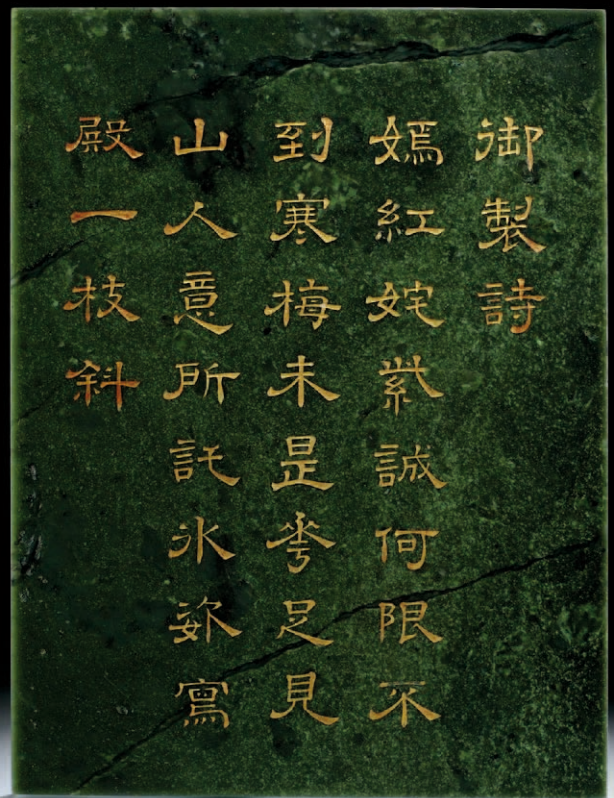 御製詩
嫣紅姹紫誠何限不
到寒梅未是花足見
山人意所託冰姿寫
殿一枝斜